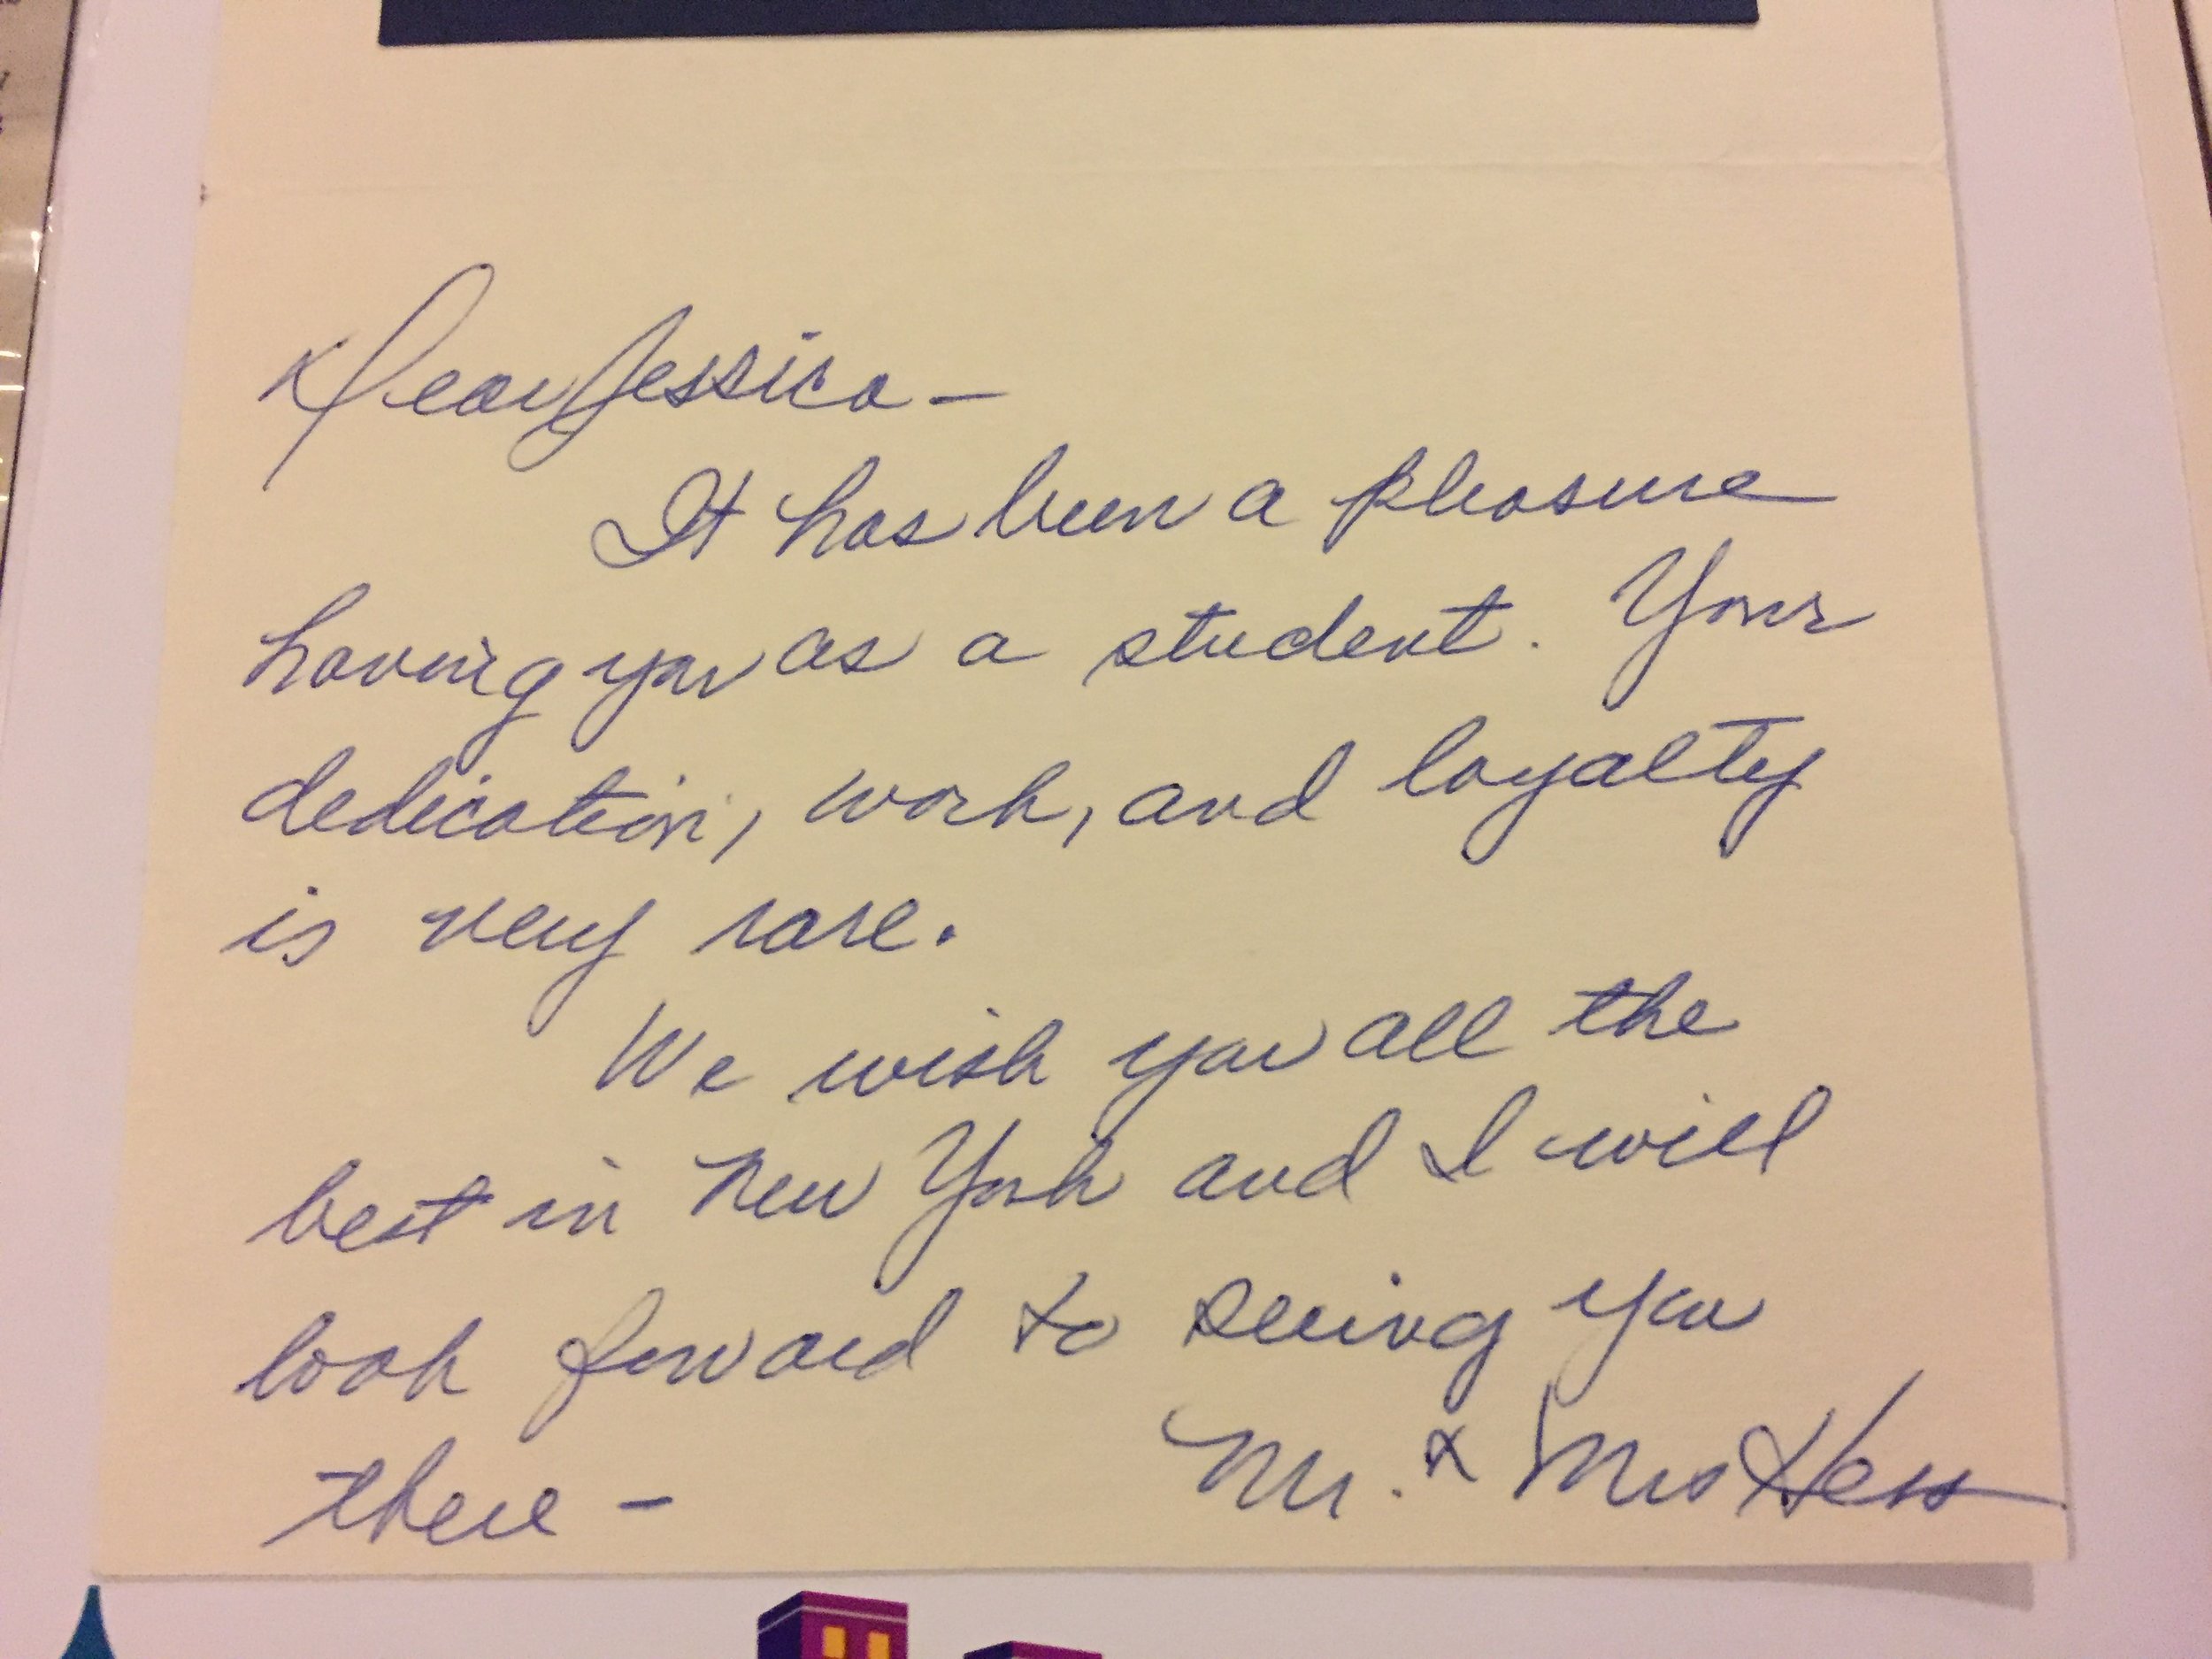 Dear Jessica –
It has been a pleasure
having you as a student. Your
dedication, work, and loyalty
is very rare.
We wish you all the
best in New York and I will
look forward to seeing you
there –
Mr. & Mrs Hess